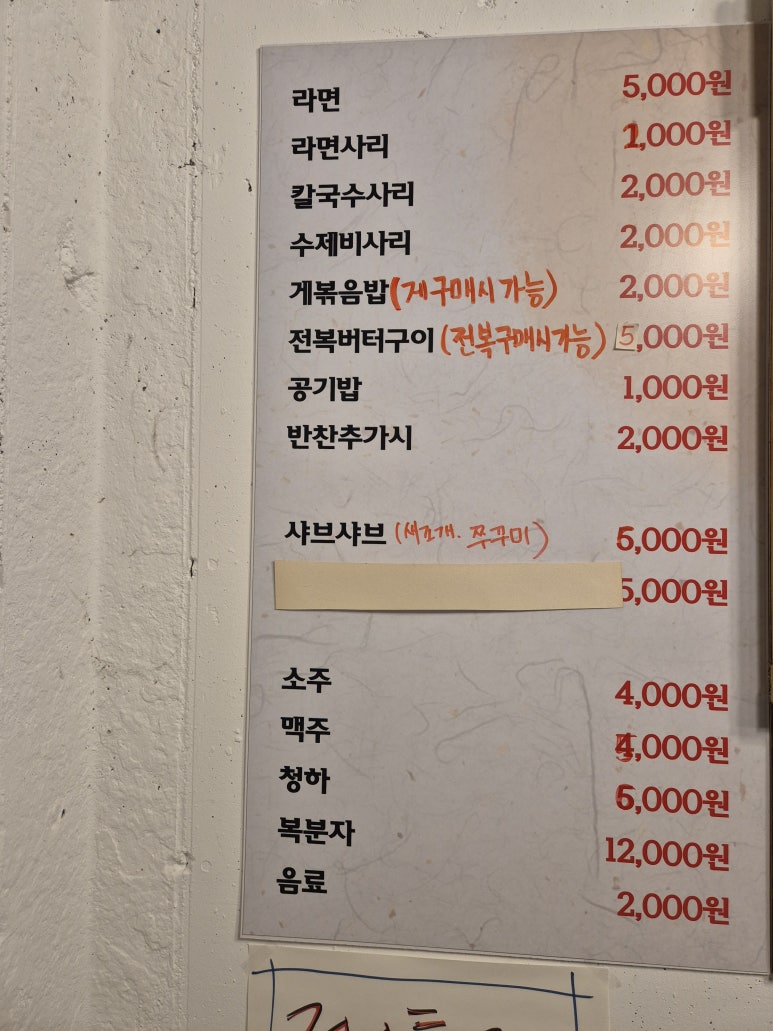 라면 5,000원
라면사리 1,000원
칼국수사리 2,000원
수제비사리 2,000원
게볶음밥(게구매시 가능) 2,000원
전복버터구이(전복구매시가능) 5,000원
공기밥 1,000원
반찬추가시 2,000원
샤브샤브 (새조개. 쭈꾸미) 5,000원
5,000원
소주 4,000원
맥주 ,000원
청하 ,000원
복분자 12,000원
음료 2,000원